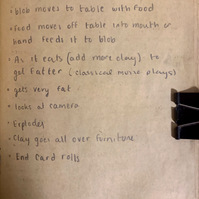 • blob moves to table with food
• food moves off table into mouth or
hand feeds it to blob
• As it eats (add more clay) to
get fatter (classical music plays)
• gets very fat
• looks at camera
• Explodes
• Clay goes all over furniture
• End card rolls